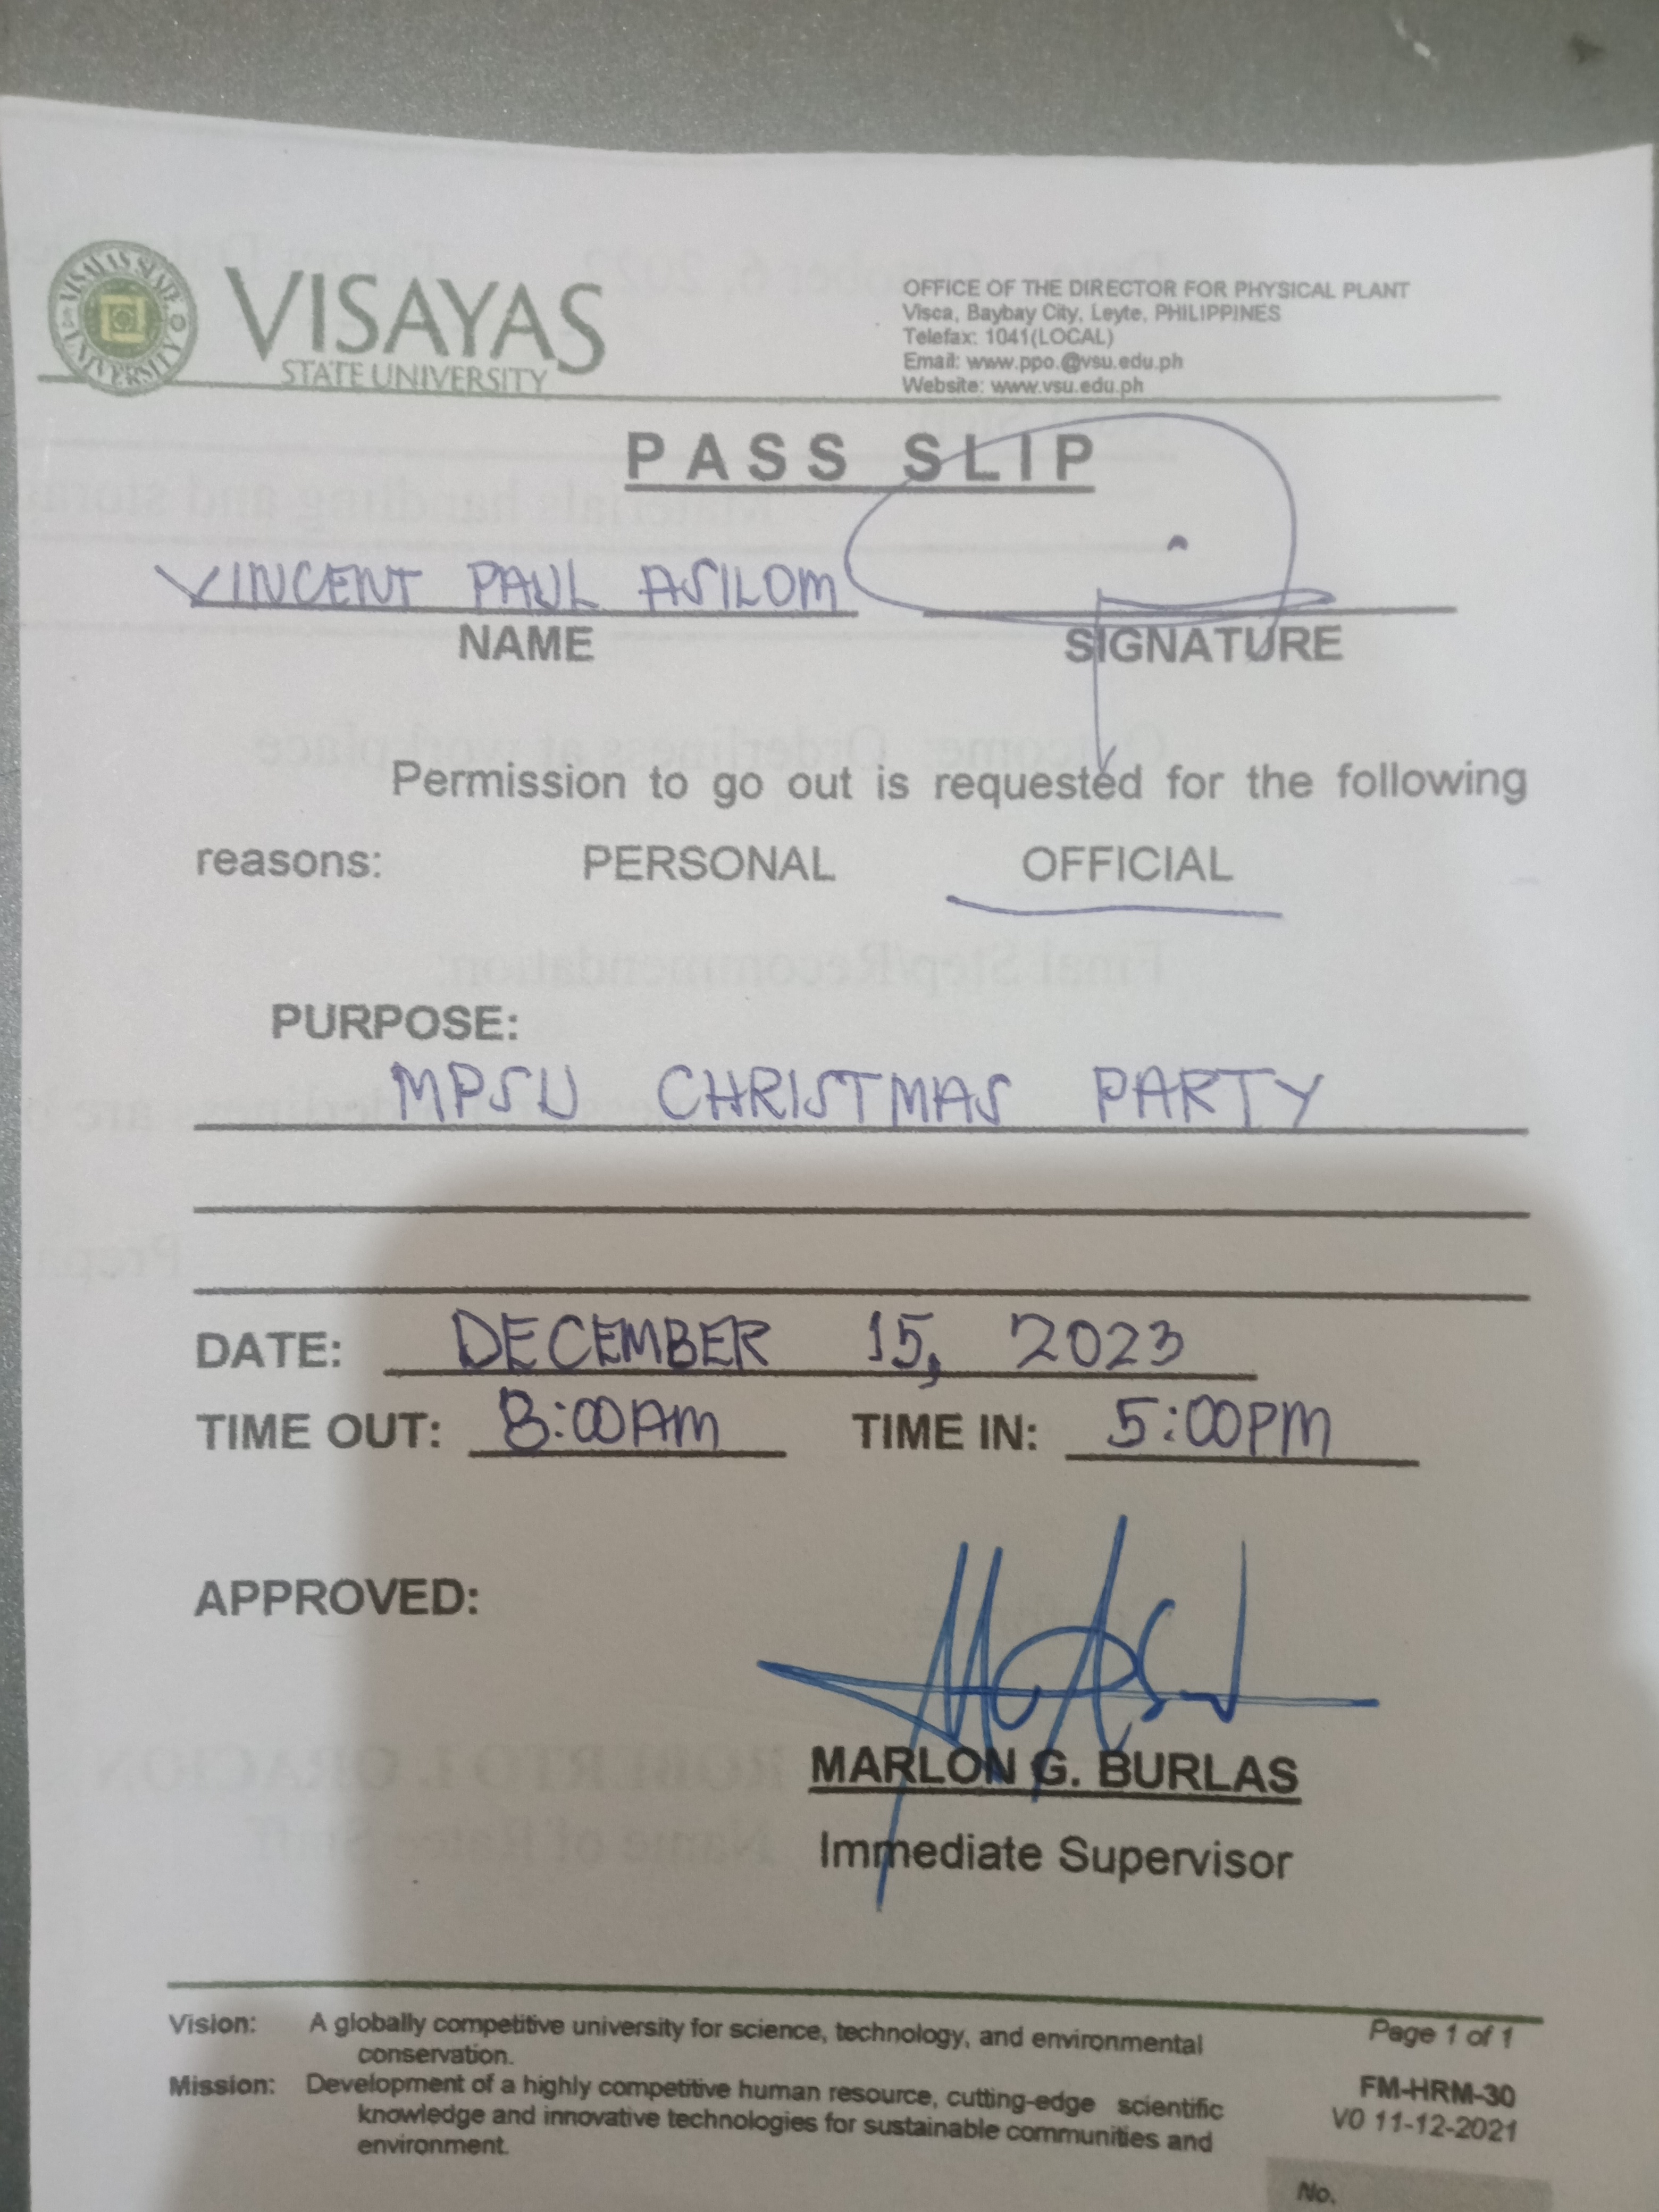 VISAYAS
STATE UNIVERSITY
VISAYAS STATE UNIVERSITY
OFFICE OF THE DIRECTOR FOR PHYSICAL PLANT
Visca, Baybay City, Leyte, PHILIPPINES
Telefax: 1041(LOCAL)
Email: www.ppo.@vsu.edu.ph
Website: www.vsu.edu.ph
PASS SLIP
VINCENT PAUL ASILOM
NAME SIGNATURE
Permission to go out is requested for the following
reasons: PERSONAL OFFICIAL
PURPOSE:
MPSU CHRISTMAS PARTY
DATE: DECEMBER 15, 2023
TIME OUT: 8:00AM TIME IN: 5:00PM
APPROVED:
MARLON G. BURLAS
Immediate Supervisor
Vision: A globally competitive university for science, technology, and environmental
conservation.
Mission: Development of a highly competitive human resource, cutting-edge scientific
knowledge and innovative technologies for sustainable communities and
environment.
Page 1 of 1
FM-HRM-30
V0 11-12-2021
No.